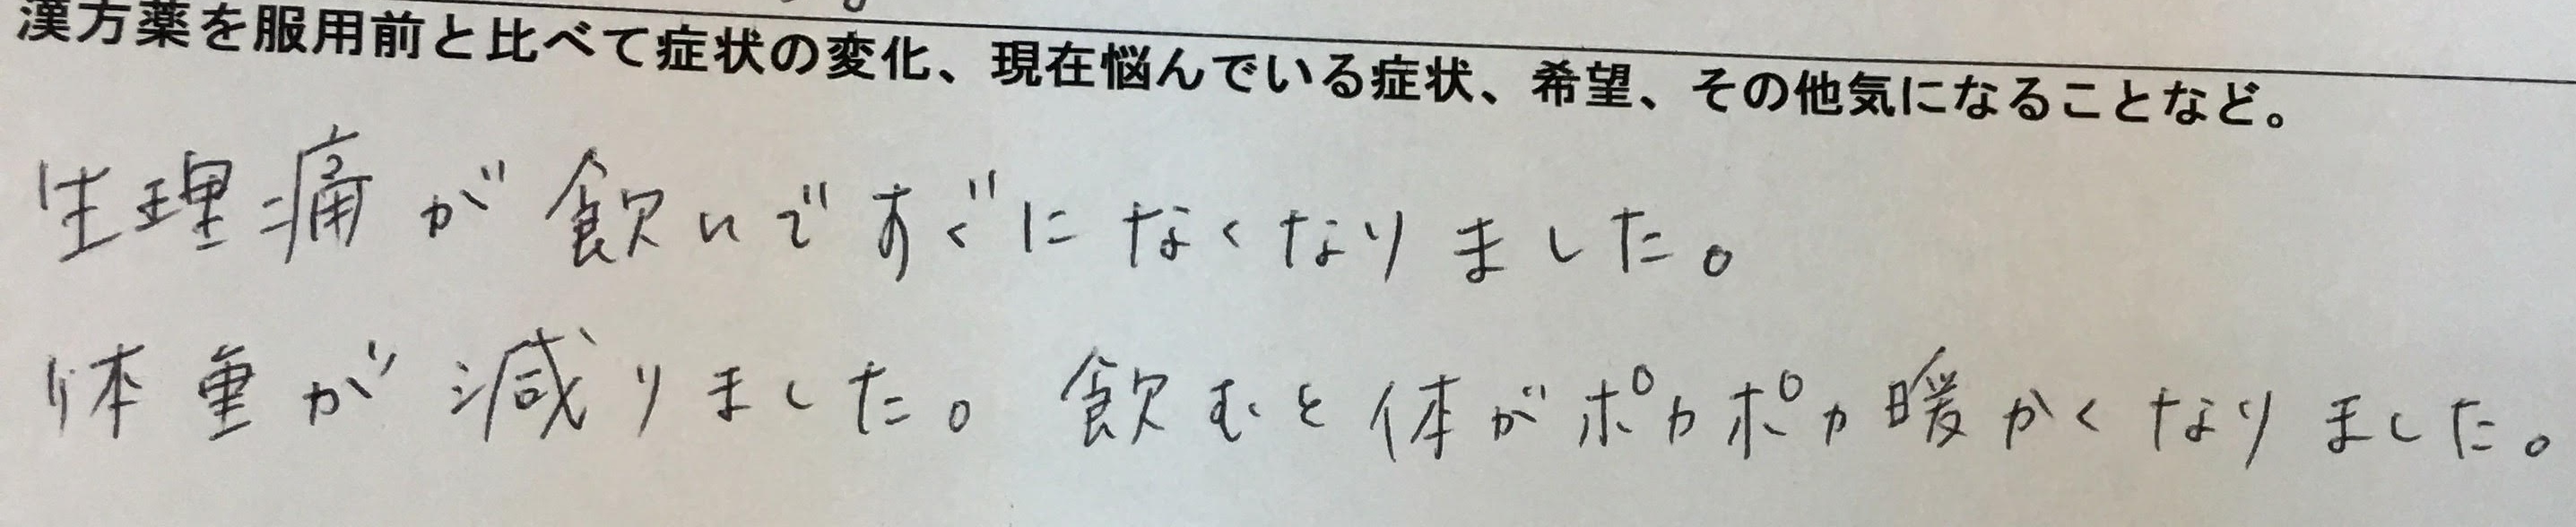 漢方薬を服用前と比べて症状の変化、現在悩んでいる症状、希望、その他気になることなど。
生理痛が飲いですぐになくなりました。
体重が減りました。飲むと体がポカポカ暖かくなりました。